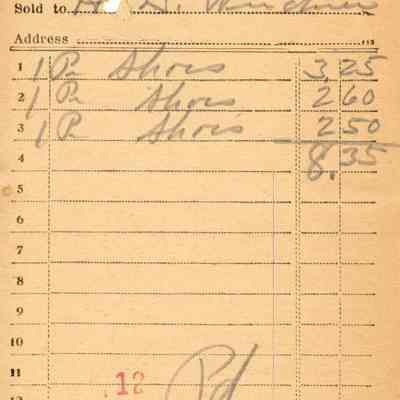 Sold to H. D.
Address
1 1 Pr Shoes 3.25
2 1 Pr Shoes 2 60
3 1 Pr Shoes 2 50
4 8.35
5
6
7
8
9
10
11
12 Pd